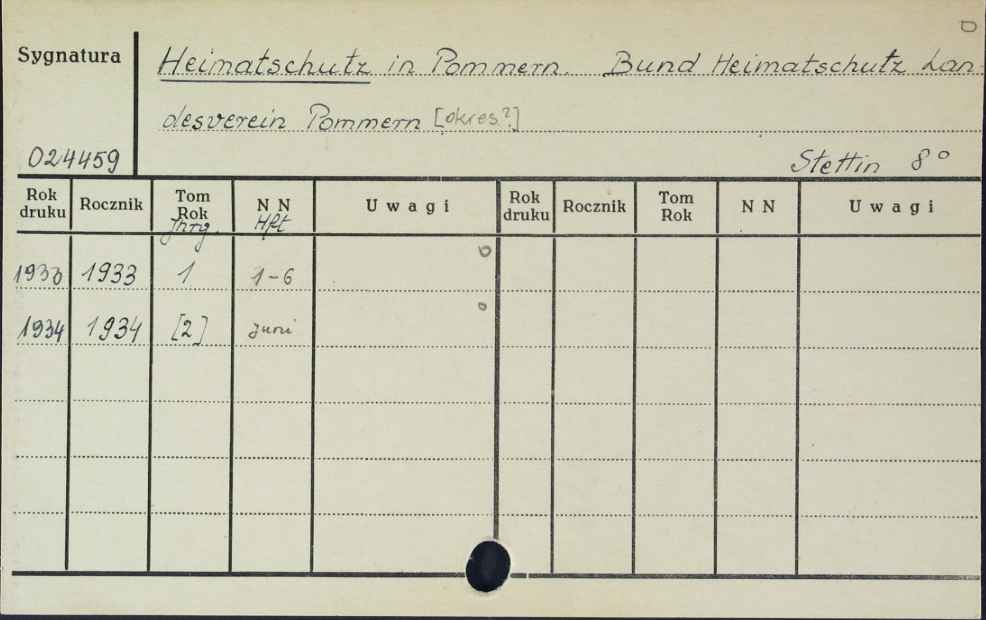 Sygnatura
Heimatschutz in Pommern. Bund Heimatschutz Lan-
desverein Pommern [okres?]
024459
Stettin 8°
Rok druku Rocznik Tom Rok NN Uwagi Rok druku Rocznik Tom Rok NN Uwagi
Jhrg. Hft
1933 1933 1 1-6
1934 1934 [2] Juni